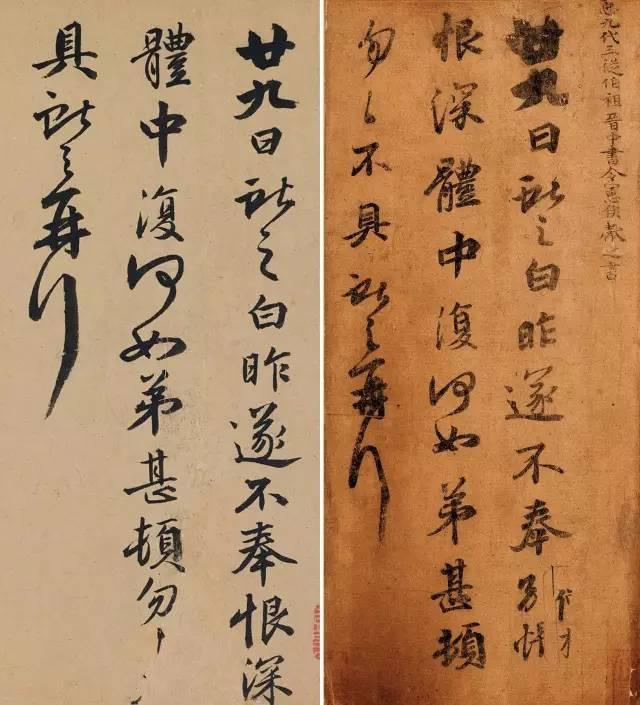 臣九代三從伯祖晉中書令憲侯獻之書
廿九日獻之白昨遂不奉別悵
恨深體中復何如弟甚頓
勿々不具獻之再拜
廿九日獻之白昨遂不奉恨深
體中復何如弟甚頓勿々
具獻之再拜